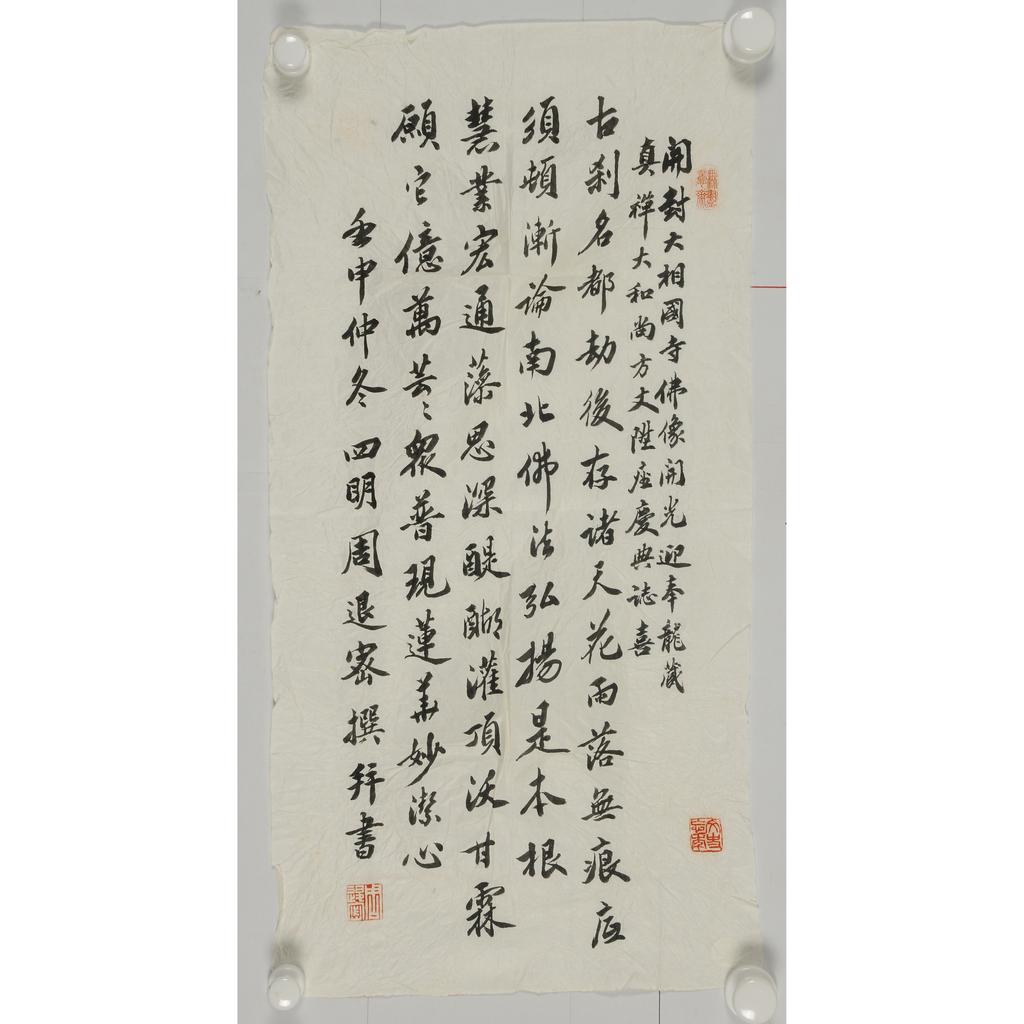 開封大相國寺佛像開光迎奉龍藏
真禪大和尚方丈陞座慶典誌喜
古刹名都劫後存諸天花雨落無痕應
須頓漸論南北佛法弘揚是本根
慧業宏通藻思深醍醐灌頂沃甘霖
願它億萬芸〻眾普現蓮華妙潔心
壬申仲冬四明周退密撰并書